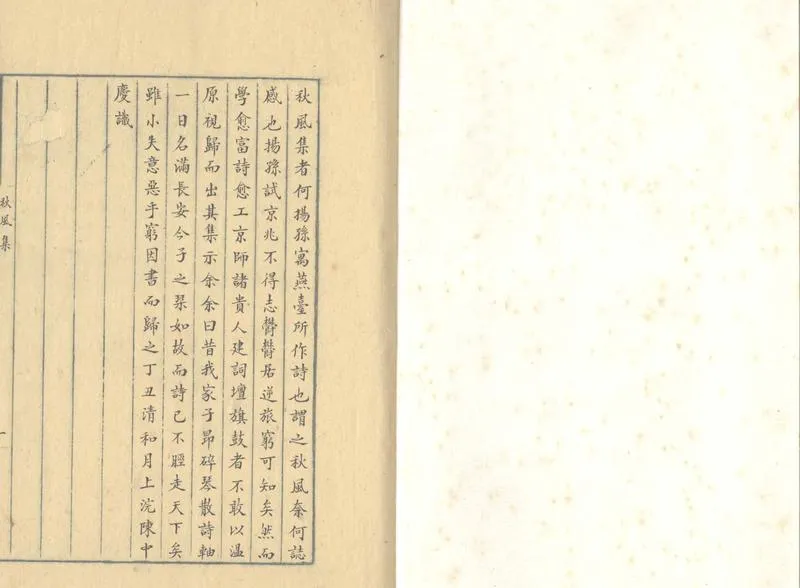 秋風集者何揚孫寓燕臺所作詩也謂之秋風奈何誌
感也揚孫試京兆不得志鬱鬱居逆旅窮可知矣然而
學愈富詩愈工京師諸貴人建詞壇旗鼓者不敢以温
原視歸而出其集示余余曰昔我家子昂碎琴散詩軸
一日名滿長安今子之琹如故而詩已不脛走天下矣
雖小失意惡乎窮因書而歸之丁丑清和月上沇陳中
慶識
秋風集
一